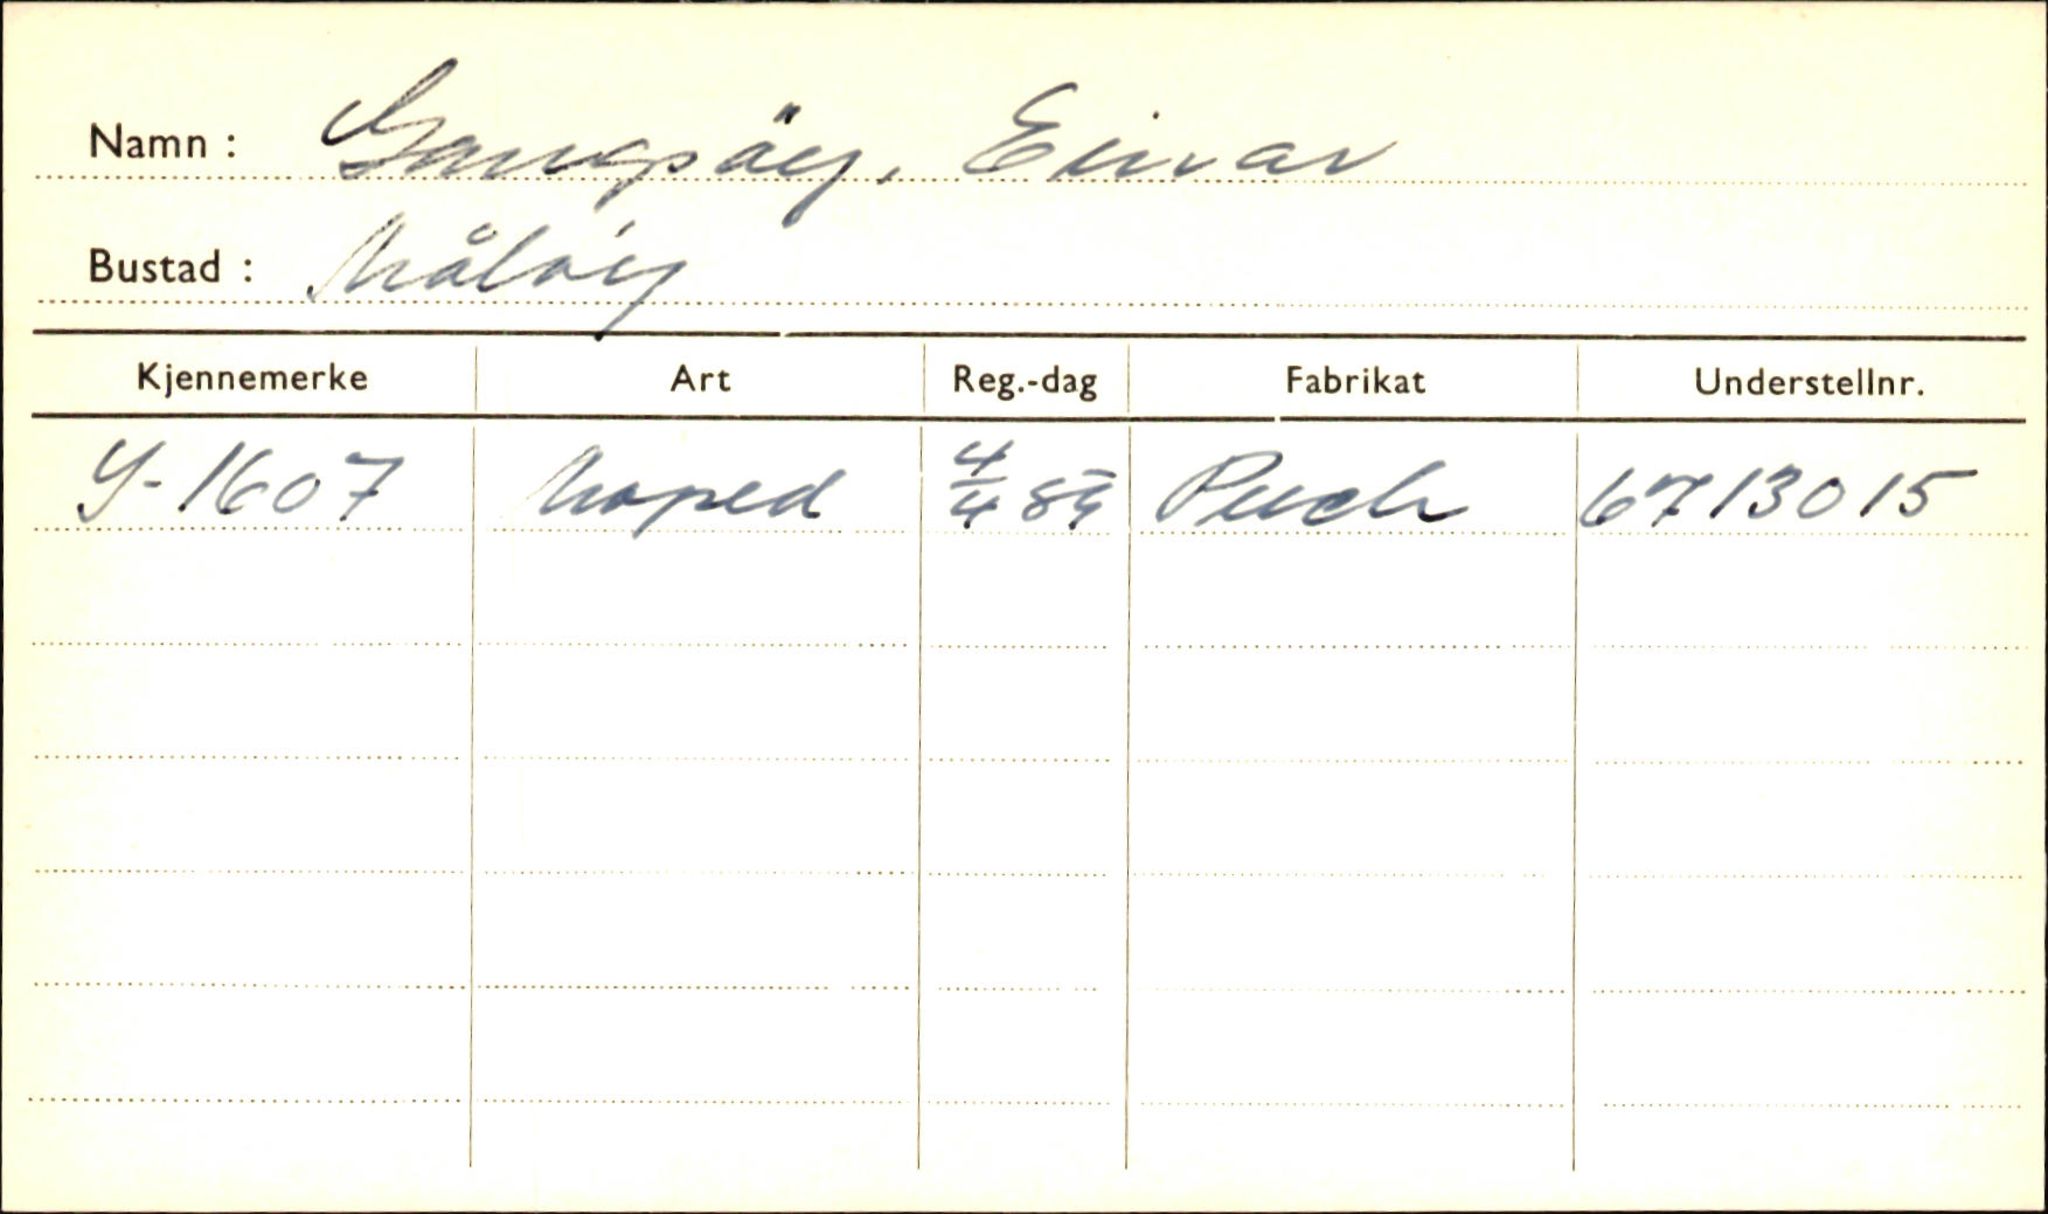 Namn : Gangsöy, Einar
Bustad : Måløy
Kjennemerke Art Reg.-dag Fabrikat Understellnr.
Y-1607 Moped 4/4 84 Puch 6713015